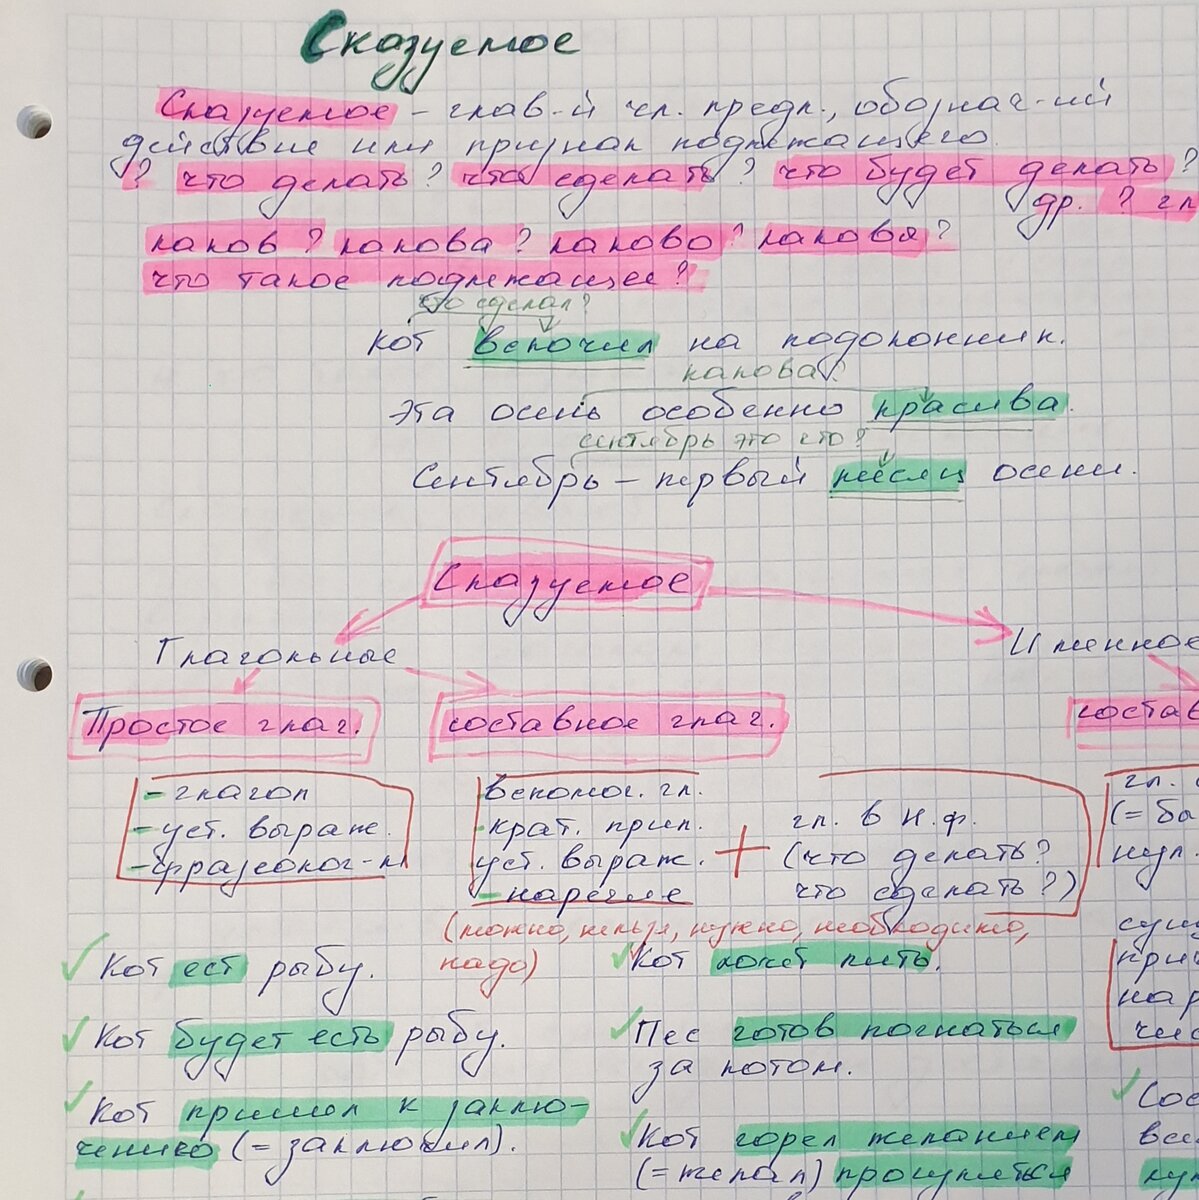 Сказуемое
Сказуемое – глав-й чл. предл., обознач-ий
действие или признак подлежащего.
? что делать? что сделать? что будет делать?
др. ? гл
каков? какова? каково? каковы?
что такое подлежащее?
что сделал?
Кот вскочил на подоконник.
какова?
Эта осень особенно красива.
сентябрь это что?
Сентябрь – первый месяц осени.
Сказуемое
Глагольные Именное
Простое глаг. составное глаг. состав
- глагол
- уст. выраж.
- фразеолог-м
вспомог. гл.
- крат. прил.
уст. выраж.
- наречие
+
гл. в н.ф.
(что делать?
что сделать?)
(можно, нельзя, нужно, необходимо,
надо)
гл.
(= бы
нул.
сущ
при
нар
чис
Кот ест рыбу.
Кот будет есть рыбу.
Кот пришел к заклю-
чению (= заключил).
Кот хочет пить.
Пес готов погнаться
за котом.
Кот горел желанием
(= желал) прогуляться
Сос
вес